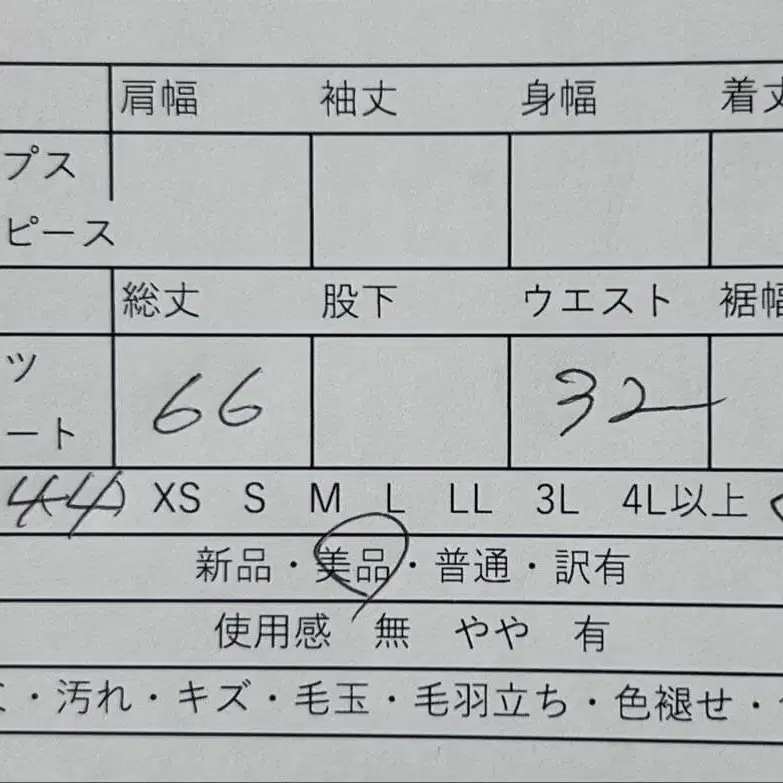 肩幅 袖丈 身幅 着丈
プス
ピース
総丈 股下 ウエスト 裾幅
ツ
66 32
ート
44) XS S M L LL 3L 4L以上
新品・美品・普通・訳有
使用感 無 やや 有
・汚れ・キズ・毛玉・毛羽立ち・色褪せ・